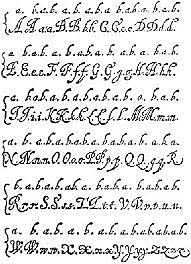 a. b.a.b. a.b.a.b.a b.a.b.a. b.a.b.
A.A.a.a.B.B.b.b. C.C.c.c.D.D.d.d.
a. b.a.b. a. b.a.b. a. b.a.b. a. b.a.b.
E.E.e.e. F.F.f.f. G.G.g.g.H.H.h.h.
a. b.a.b.a. b.a.b.a. b.a.b. a. b.a.b.
I.I.i.i. K.K.k.k. L.L.l.l. M.M.m.m.
a. b.a.b.a.b.a.b.a. b.a.b.a. b.a.b.a.
N.N.n.n.O.O.o.o.P.P.p.p. Q.Q.q.q. R.
b. a.b.a.b.a.b.a. b.a.b.a. b.a.b.
R.r.r.S.S.s.s.T.T.t.t. V.V.v.v.u.u.
a. b. a.b. a. b. a.b. a. b.a.b.a.b.a.b.
W.W.w.w. X.X.x.x.Y.Y.y.y. Z.Z.z.z.